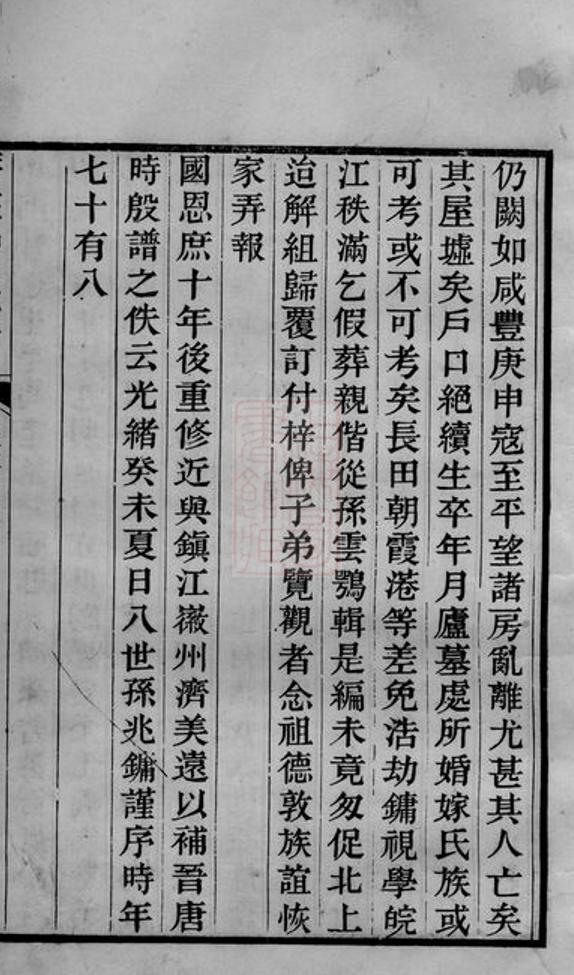 仍闕如咸豐庚申寇至平望諸房亂離尤甚其人亡矣
其屋墟矣戶口絕續生卒年月廬墓處所婚嫁氏族或
可考或不可考矣長田朝霞港等差免浩劫鏞視學皖
江秩滿乞假葬親偕從孫雲鶚輯是編未竟匆促北上
迨解組歸覆訂付梓俾子弟覽觀者念祖德敦族誼恢
家弄報
國恩庶十年後重修近與鎮江徽州濟美遠以補晉唐
時殷譜之佚云光緒癸未夏日八世孫兆鏞謹序時年
七十有八